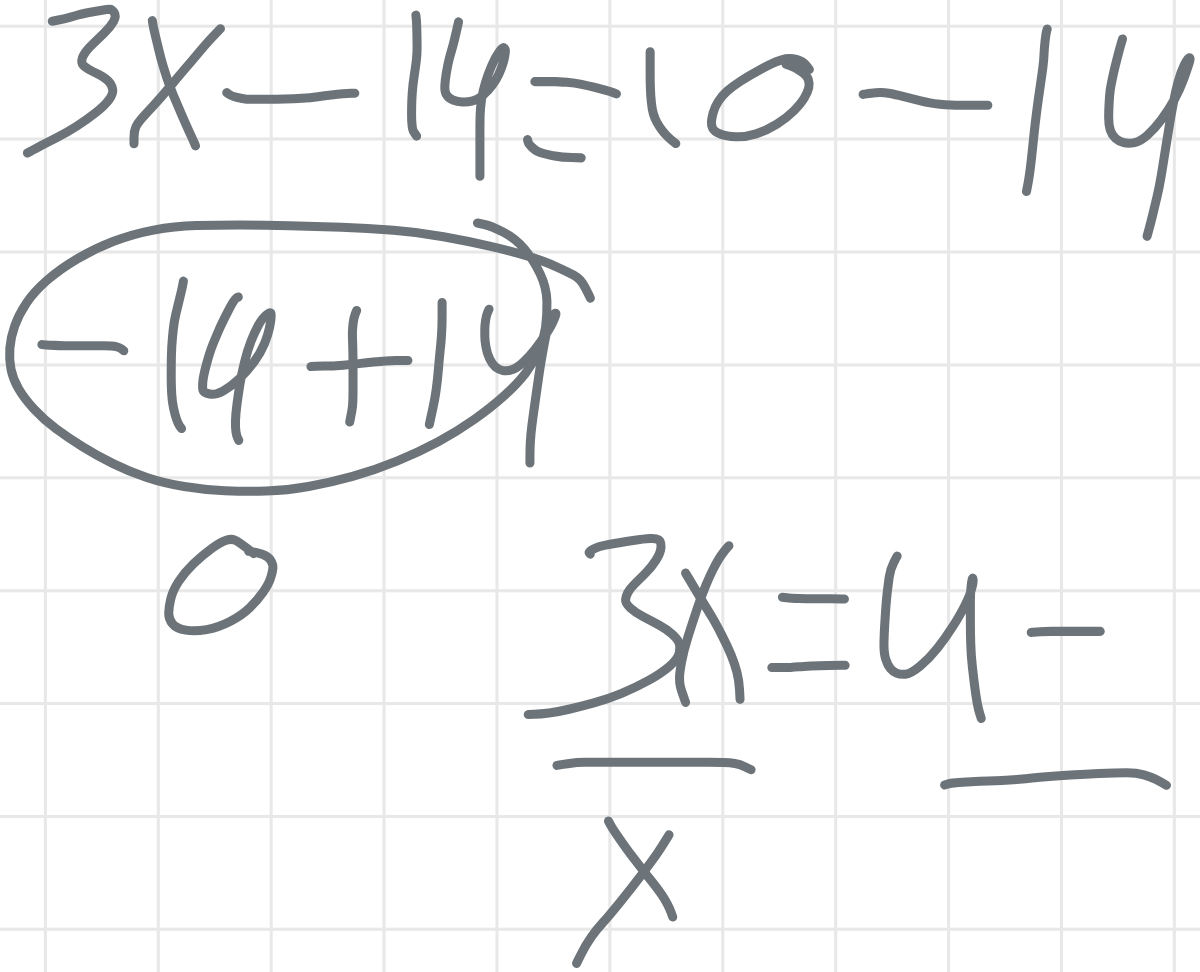 3x - 14 = 10 - 14
- 14 + 14
0
3x = 4 -
x